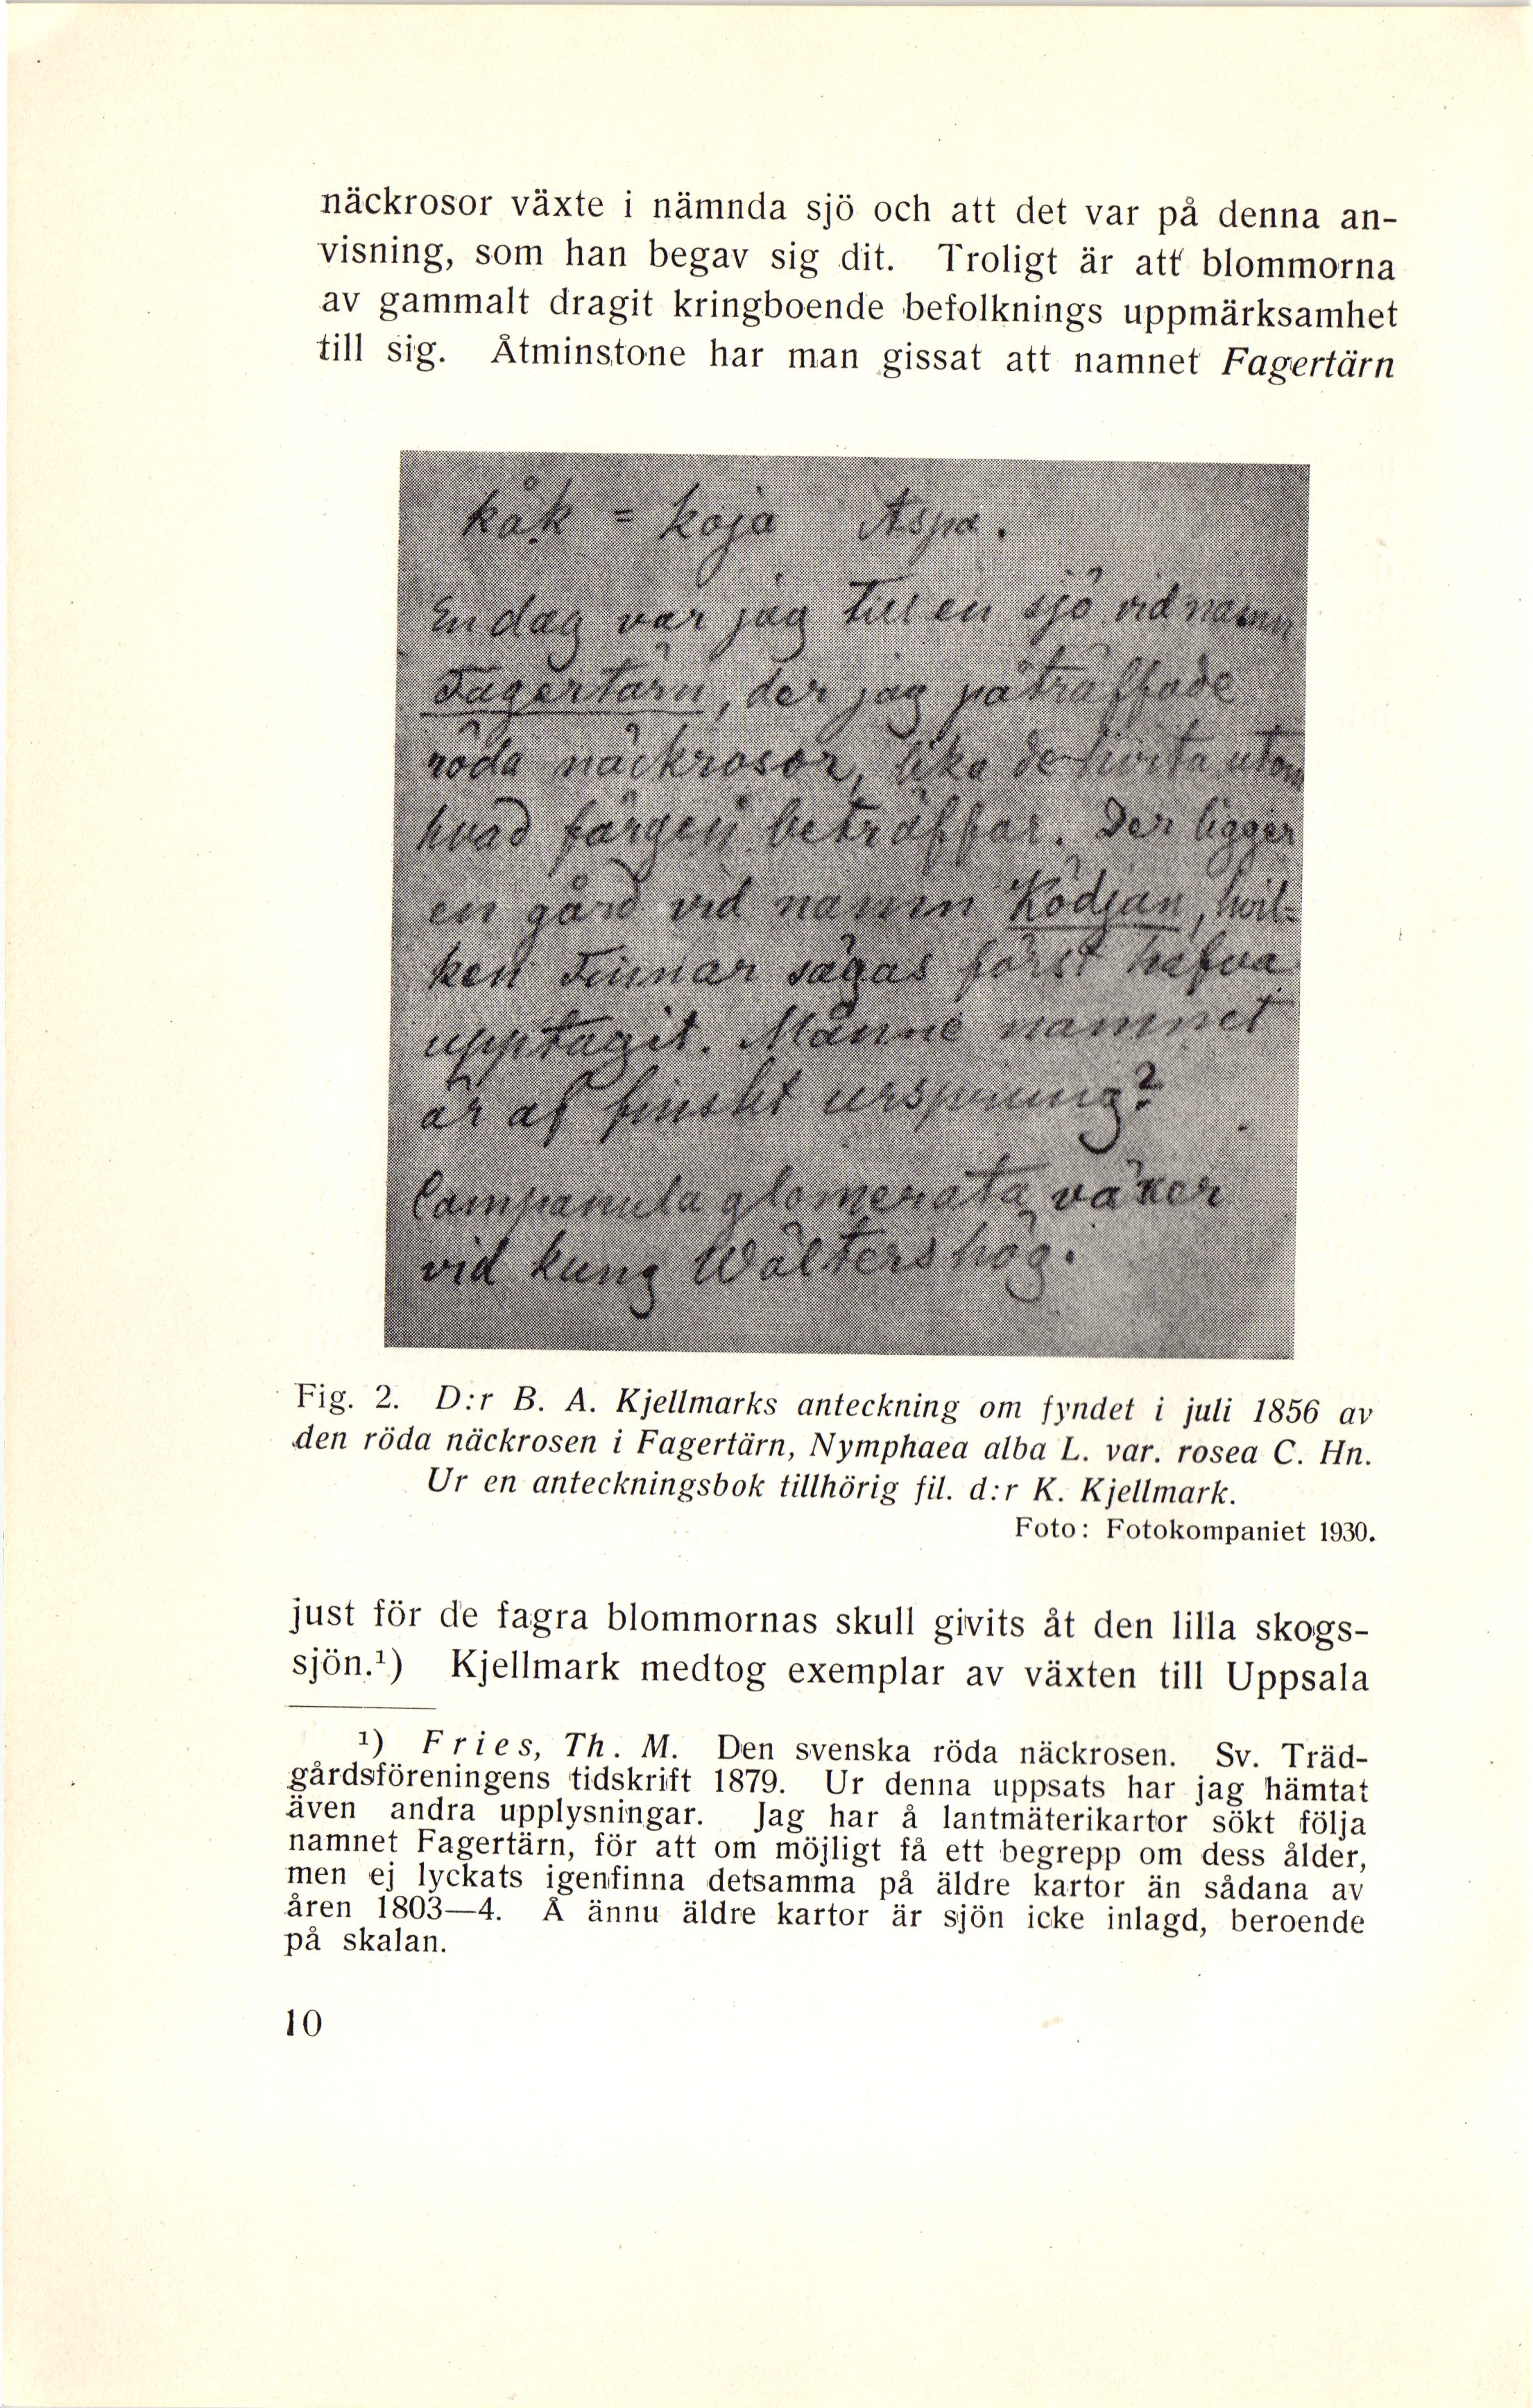 näckrosor växte i nämnda sjö och att det var på denna an-
visning, som han begav sig dit. Troligt är att blommorna
av gammalt dragit kringboende befolknings uppmärksamhet
till sig. Åtminstone har man gissat att namnet Fagertärn
kåk = koja Aspa.
En dag var jag till en sjö vid namn
Fagertärn, der jag påträffade
röda näckrosor, lika de hvita utom
hvad färgen beträffar. Der ligger
en gård vid namn Ködjan, hvil-
ken Finnar sägas först hafva
upptagit. Månne namnet
är af finskt ursprung?
Campanula glomerata växer
vid kung Wälters hög.
Fig. 2. D:r B. A. Kjellmarks anteckning om fyndet i juli 1856 av
den röda näckrosen i Fagertärn, Nymphaea alba L. var. rosea C. Hn.
Ur en anteckningsbok tillhörig fil. d:r K. Kjellmark.
Foto: Fotokompaniet 1930.
just för de fagra blommornas skull givits åt den lilla skogs-
sjön.¹) Kjellmark medtog exemplar av växten till Uppsala
¹) Fries, Th. M. Den svenska röda näckrosen. Sv. Träd-
gårdsföreningens tidskrift 1879. Ur denna uppsats har jag hämtat
även andra upplysningar. Jag har å lantmäterikartor sökt följa
namnet Fagertärn, för att om möjligt få ett begrepp om dess ålder,
men ej lyckats igenfinna detsamma på äldre kartor än sådana av
åren 1803—4. Å ännu äldre kartor är sjön icke inlagd, beroende
på skalan.
10